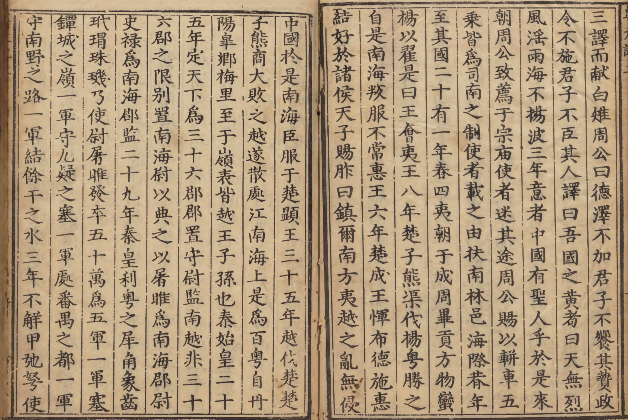 三譯而献白雉周公曰德澤不加君子不饗其贄政
令不施君子不臣其人譯曰吾國之黄耉曰天無烈
風滛雨海不揚波三年意者中國有聖人乎於是來
朝周公致薦于宗庙使者迷其途周公賜以軿車五
乗皆爲司南之制使者載之由扶南林邑海際朞年
至其國二十有一年春四夷朝于成周畢貢方物蠻
楊以翟是曰王會夷王八年楚子熊渠伐揚粤勝之
自是南海叛服不常惠王六年楚成王惲布德施惠
結好於諸侯天子賜胙曰鎮爾南方夷越之亂無侵
中國於是南海臣服于楚顕王三十五年越伐楚楚
子熊商大敗之越遂散處江南海上是爲百粤自丹
陽皐鄉梅里至于嶺表皆越王子孫也秦始皇二十
五年定天下爲三十六郡郡置守尉監南越非三十
六郡之限别置南海尉以典之以屠睢爲南海郡尉
史禄爲南海郡監二十九年秦皇利粤之犀角象齒
玳瑁珠璣乃使尉屠睢發卒五十萬爲五軍一軍塞
鐔城之嶺一軍守九疑之塞一軍處番禺之都一軍
守南野之路一軍結餘干之水三年不解甲弛弩使